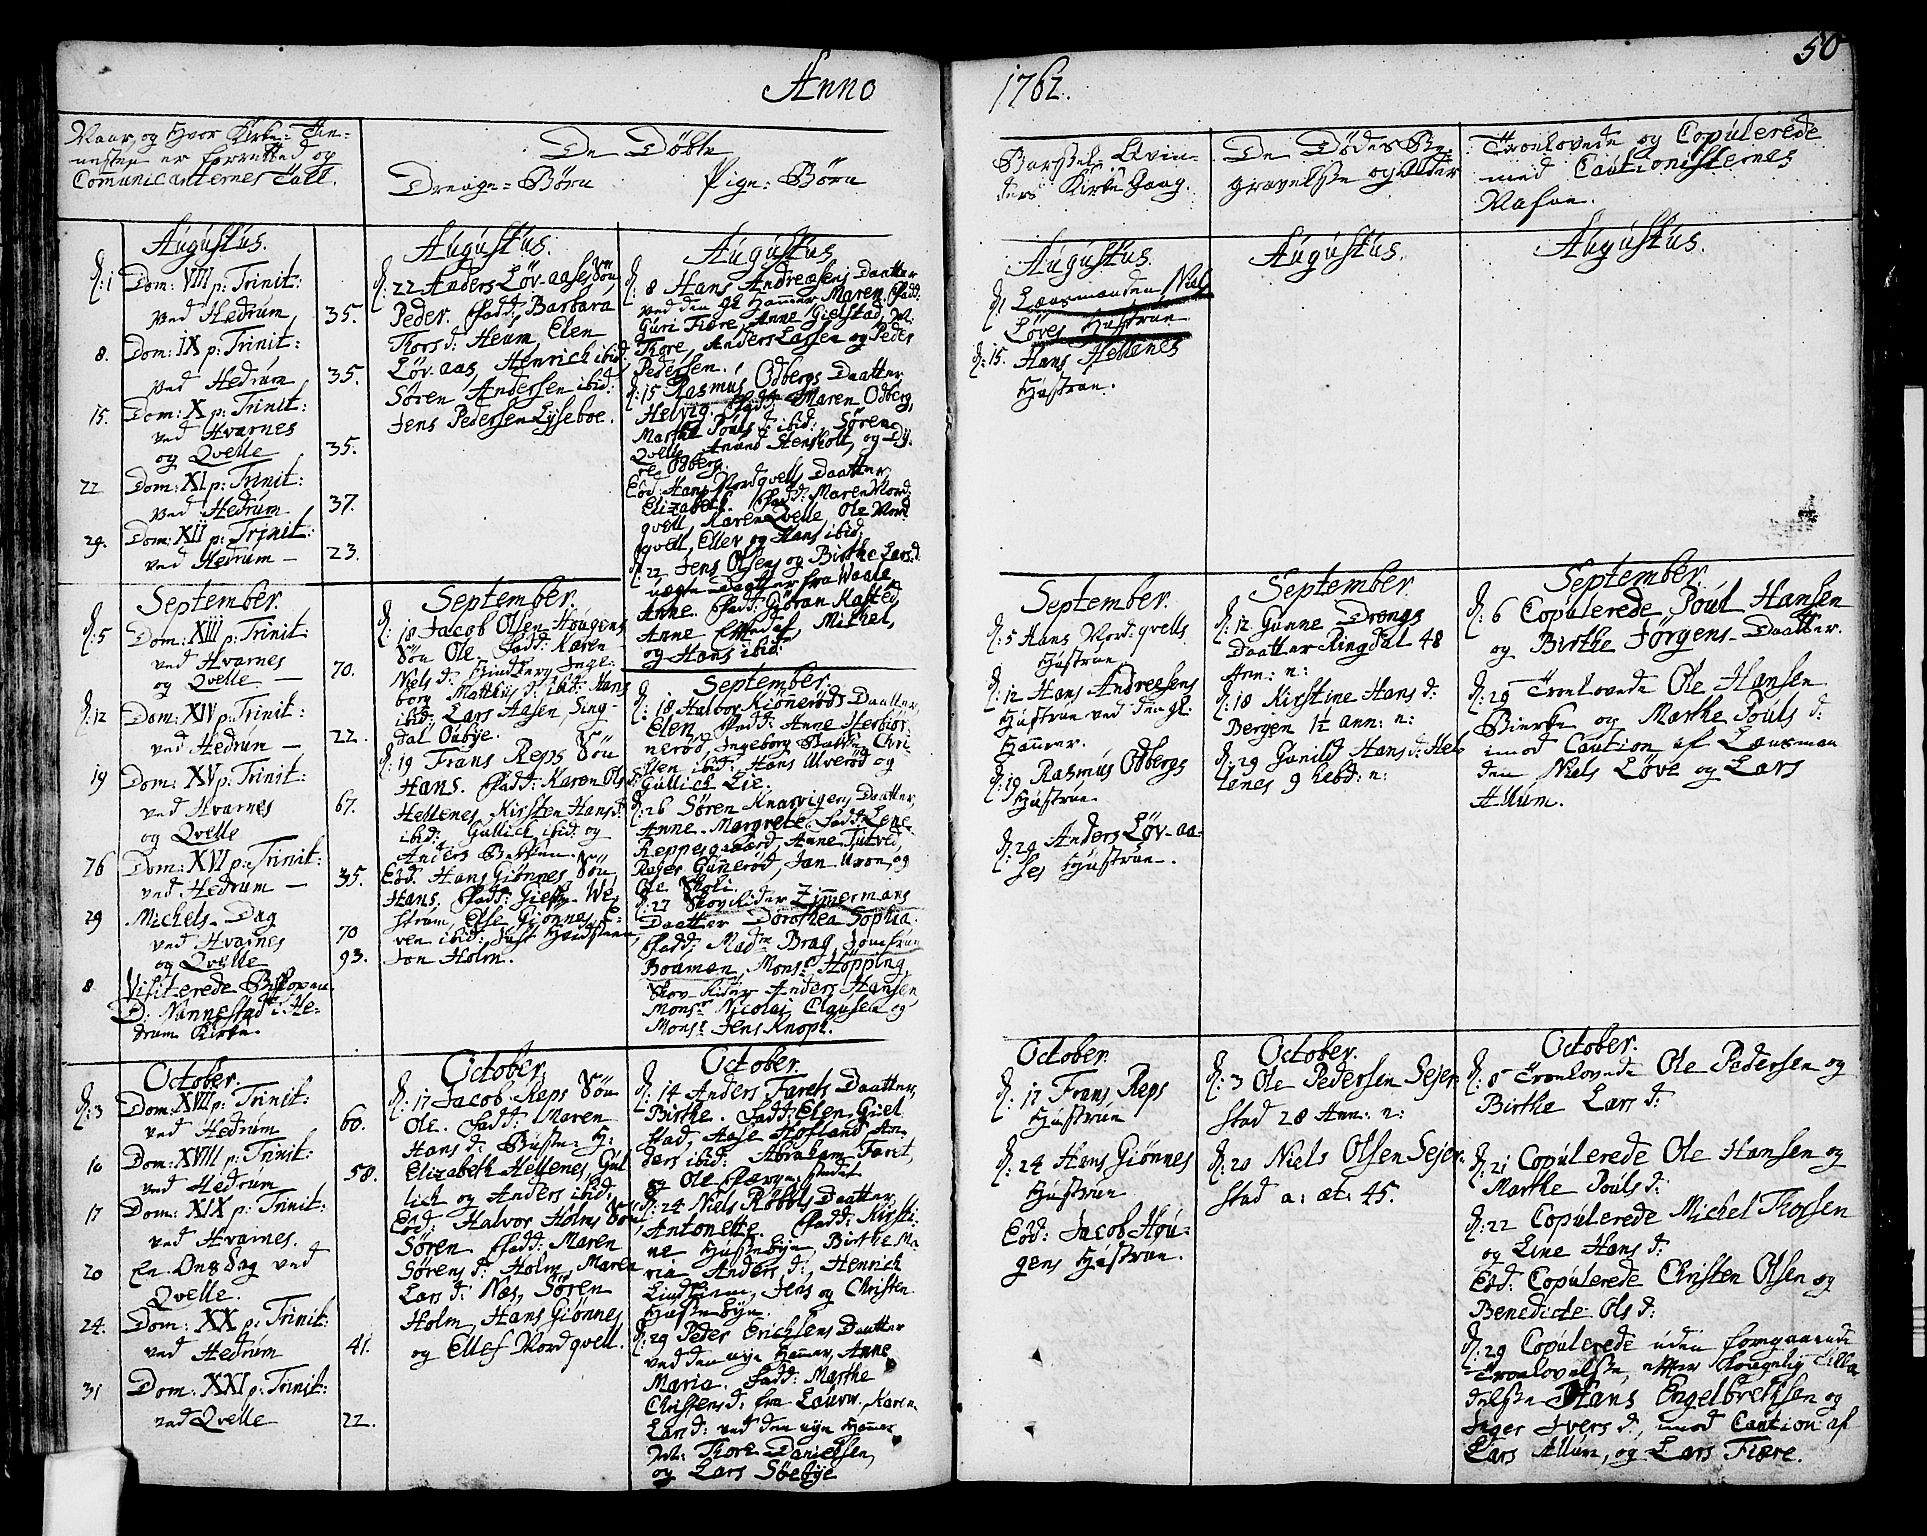 Anno
1762.
50
Naar, og Hvor Kirke-Tie-
nesten er forretted og
Comunicanternes Tall.
De Døbte
Drenge-Børn
Pige-Børn
Augustus.
D: 1 Dom: VIII p: Trinit:
ved Hedrum 35.
8. Dom: IX p: Trinit:
ved Hedrum 35.
15. Dom: X p: Trinit:
ved Hvarnes
og Qvelle 35.
22 Dom: XI p: Trinit:
ved Hedrum 37.
29. Dom: XII p: Trinit:
ved Hedrum — 23.
September.
D: 5 Dom: XIII p: Trinit:
ved Hvarnes
og Qvelle — 70.
D: 12 Dom: XIV p: Trinit:
ved Hedrum — 22.
19 Dom: XV p: Trinit:
ved Hvarnes 67.
og Qvelle
26 Dom: XVI p: Trinit:
ved Hedrum — 35.
29 Michels-Dag
ved Hvarnes 70
og Qvelle 93.
8 Visiterede Biskopen
D: Nannestad i He-
drum Kirke.
October.
D: 3 Dom: XVII p: Trinit:
ved Hedrum 60.
10 Dom: XVIII p: Trinit:
ved Hedrum 58.
17 Dom: XIX p: Trinit:
ved Hvarnes.
20 En Onsdag ved
Qvelle.
24. Dom: XX p: Trinit:
ved Hedrum 41.
31 Dom: XXI p: Trinit:
ved Qvelle 22.
Augustus.
D: 22 Anders Løv-aases Søn
Peder. Fadd: Barbara
Thors d: Heum, Elen
Løv-aas, Henrich ibid:
Søren Andersen ibid:
Jens Pedersen Lyseboe.
September.
D: 18 Jacob Olsen Hougens
Søn Ole. Fadd: Karen
Niels d: Inge-
borg Matthis d: ibid: Hans
ibid: Lars Aasen, Sing-
dal Oubye.
D: 19 Frans Reps Søn
Hans. Fadd: Karen Ols d:
Hellenes, Kirsten Hans d:
ibid: Gullich ibid: og
Anders Bakken.
Eod: Hans Giønnes Søn
Hans. Fadd: We-
strum, Else Giønnes, E-
ven ibid:
Jon Holm.
October.
D: 17 Jacob Reps Søn
Ole. Fadd: Maren
Hans d:
Elizabeth Hellenes, Gul-
lich og Anders ibid:
Eod: Halvor Holms Søn
Søren. Fadd: Maren
Sørens d: Holm, Maren
Lars d: Næs, Søren
Holm, Hans Giønnes
og Ellef Nordqvell.
Augustus.
D: 8 Hans Andreasens Daatter
ved den gl: Hammer, Maren. Fadd:
Guri Fiære, Anne Gielstad, N.
Thore, Anders Lassen og Peder
Pedersen.
D: 15 Rasmus Odbergs Daatter
Helvig. Fadd: Maren Odberg,
Marthe Pouls d: ibid: Søren
Qvelle, Anund Stensholt, og
Ole Odberg.
Eod: Hans Nordqvells Daatter
Elizabeth. Fadd: Maren Nord-
qvell, Karen Qvelle, Ole Nord-
qvell, Ellev og Hans ibid:
D: 22 Jens Olsens og Birthe Lars d:
uægte Daatter fra Waale
Anne. Fadd: Gøran Kasted,
Anne Michel,
og Hans ibid:
September.
D: 18 Halvor Kiønnerøds Daatter,
Elen. Fadd: Anne
nerød, Ingeborg Chri-
sten ibid: Hans Ulverød og
Gullich Lie.
D: 26 Søren Knarvigens Daatter,
Anne Margrete. Fadd: Lene
Reppesgaard, Anne Tutved,
Rejer Gunnerød, Jan og
Ole Skoli.
D: 27 Skov Rider Zimmermans
Daatter Dorothea Sophia.
Fadd: Mad:me Brag, Jomfrue
Boaman, Mons:r Høpping,
Skov-Rider Anders Hansen,
Mons:r Nicolai Clausen og
Mons:r Jens Knopf.
October.
D: 14 Anders Farets Daatter,
Birthe. Fadd: Elen Giel-
stad, Aase Skofland, An-
ders ibid: Abraham Faret,
og Ole Færgestadet
D: 24 Niels Røbbls Daatter
Antonette. Fadd: Kirsti-
ne Hussebyn, Birthe Ma-
ria Anders d: Henrich
Lindhiem, Jens og Christen
Hussebyn.
D: 29 Peder Erichsens Daatter
ved den nye Hammer, Anne
Maria. Fadd: Marthe
Christens d: fra Laurv: Karen
Lars d: ved den nye Hammer
Thore Danielsen,
og Lars Søebye
Barsel-Qvin-
ders Kirke Gang.
De Dødes Be-
gravelse og Alder
Troelovede og Copulerede
med Cautionisternes
Nafne.
Augustus.
D: 1 Lænsmanden Niels
Løves Hustrue
D: 15. Hans Hellenes
Hustrue.
September.
D: 5 Hans Nord-qvells
Hustrue
D: 12 Hans Andreasens
Hustrue ved den gl:
Hammer.
D: 19 Rasmus Odbergs
Hustrue
D: 29 Anders Løv-aa-
ses Hustrue.
October.
D: 17 Frans Reps
Hustrue
D: 24 Hans Giønnes
Hustrue
Eod: Jacob Hou-
gens Hustrue.
Augustus.
September.
D: 12 Gunne Drengs
Daatter Ringdal 48
Ann: n:
D: 18 Kirstine Hans d:
Bergen 1½ ann: n:
D: 29 Gunild Hans d: Hel-
lenes 9 hebd: n:
October.
D: 3 Ole Pedersen Sejer-
stad 28 Ann: n:
D: 20 Niels Olsen Sejer-
stad a: æt: 45.
Augustus.
September.
D: 6 Copulerede Poul Hansen
og Birthe Jørgens-Daatter.
D: 29 Troelovede Ole Hansen
Bierke og Marthe Pouls d:
imod Caution af Lænsman-
den Niels Løve og Lars
Allum.
October.
D: 8 Troelovede Ole Pedersen og
Birthe Lars d:
D: 21 Copulerede Ole Hansen og
Marthe Pouls d:
D: 22 Copulerede Michel Thossen
og Line Hans d:
Eod: Copulerede Christen Olsen og
Benedicte Ols d:
D: 29 Copulerede uden foregaaende
Troelovelse, efter Kongelig Tilla-
delse Hans Engelbrethsen og
Inger Ivers d, imod Caution af
Lars Allum, og Lars Fiære.